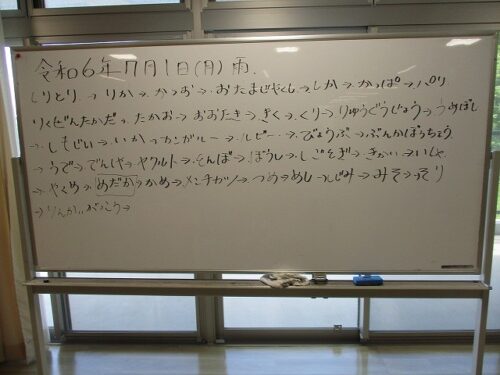 令和6年7月1日(月)雨.
しりとり→りか→かつお→おたまじゃくし→しか→かっぱ→パリ
りくぜんたかだ→たかお→おおたき→きく→くり→りゅうぐうじょう→うめぼし
→しもじい→いか→カンガルー→ルビー→びょうぶ→ぶんかほうちょう
→うで→でんしゃ→ヤクルト→とんぼ→ぼうし→しごとぎ→きかい→いしゃ
→やくめ→めだか→かめ→メンチカツ→つめ→めし→しじみ→みそ→そり
→りんかいがっこう→